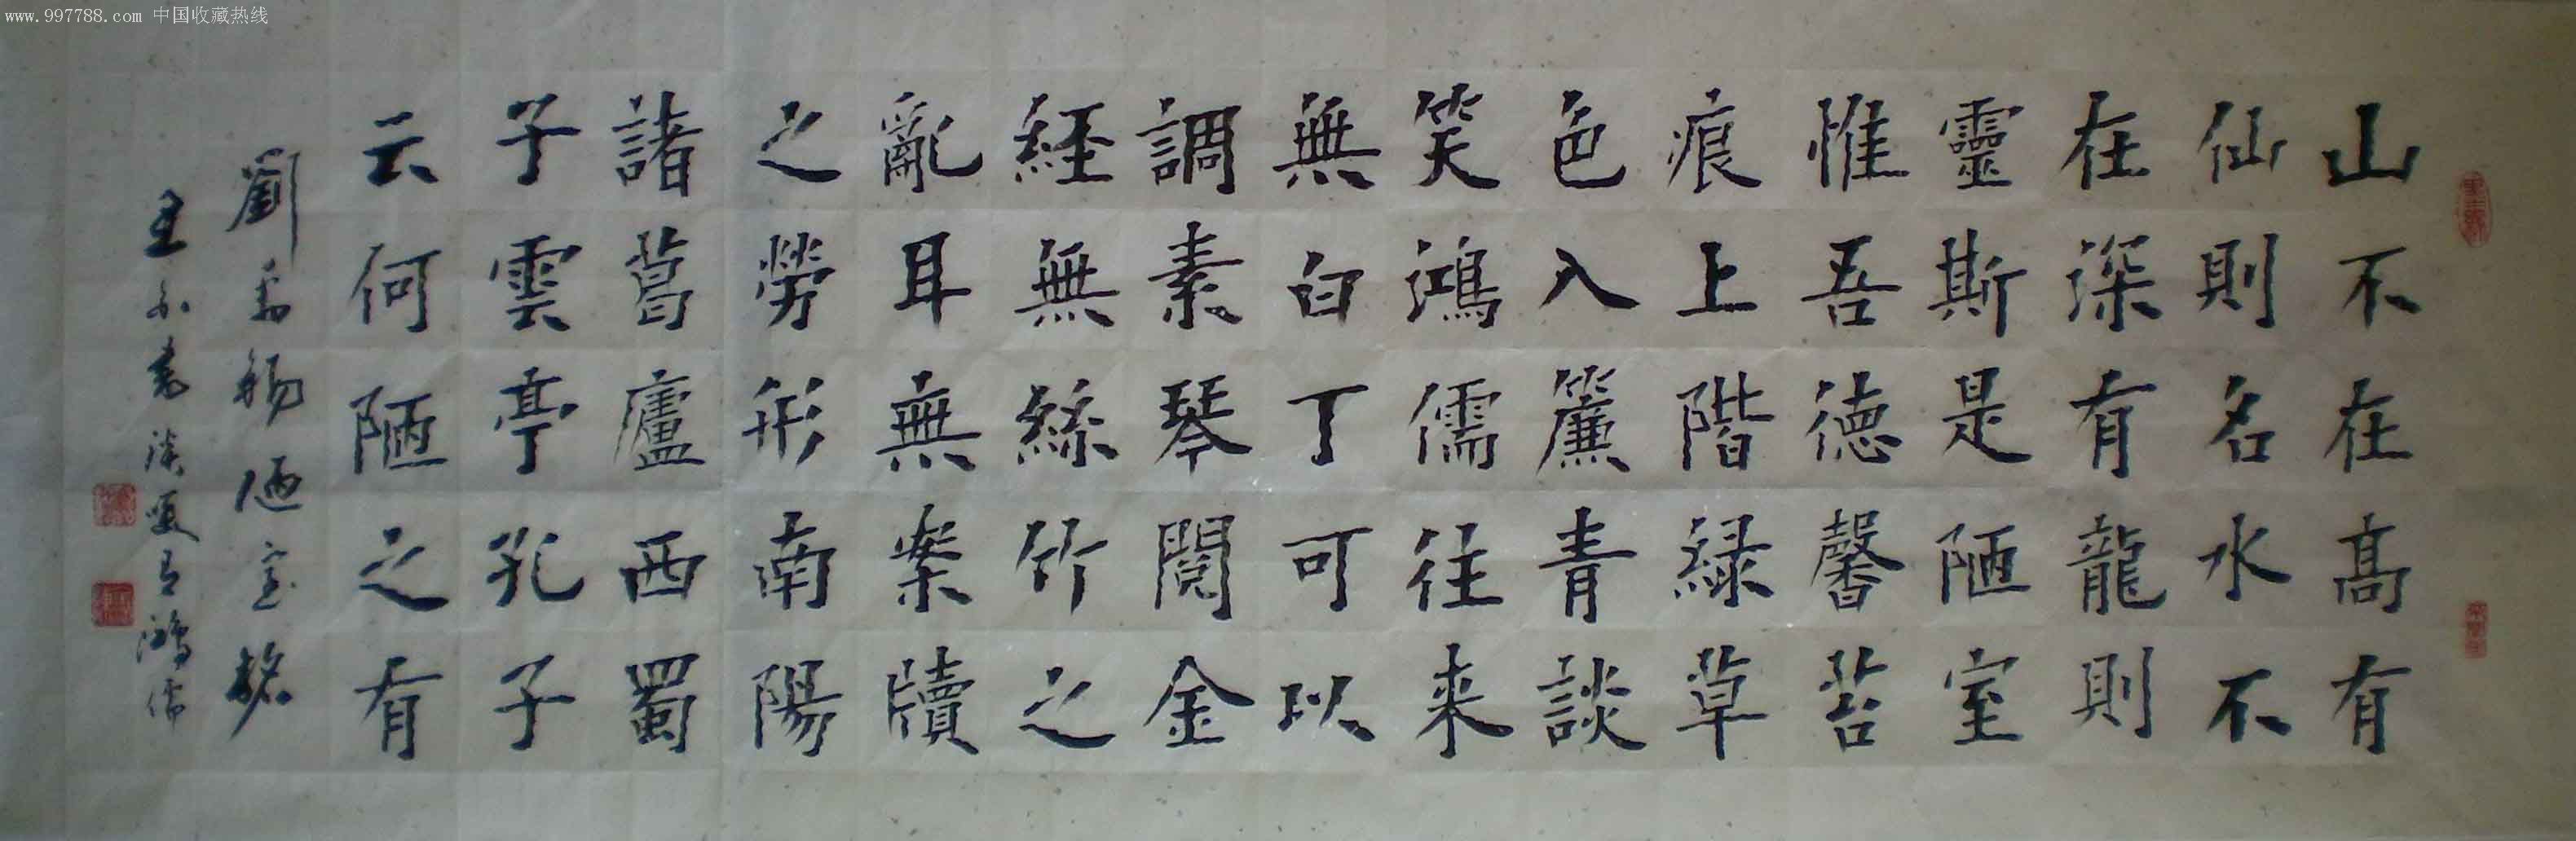 www.997788.com 中国收藏热线
山不在高有
仙則名水不
在深有龍則
靈斯是陋室
惟吾德馨苔
痕上階緑草
色入簾青談
笑鴻儒往来
無白丁可以
調素琴閲金
経無絲竹之
亂耳無案牘
之勞形南陽
諸葛廬西蜀
子雲亭孔子
云何陋之有
劉禹錫陋室銘
鴻儒